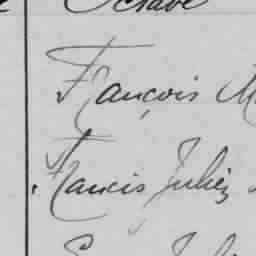 Octave
François M
Francis Julien